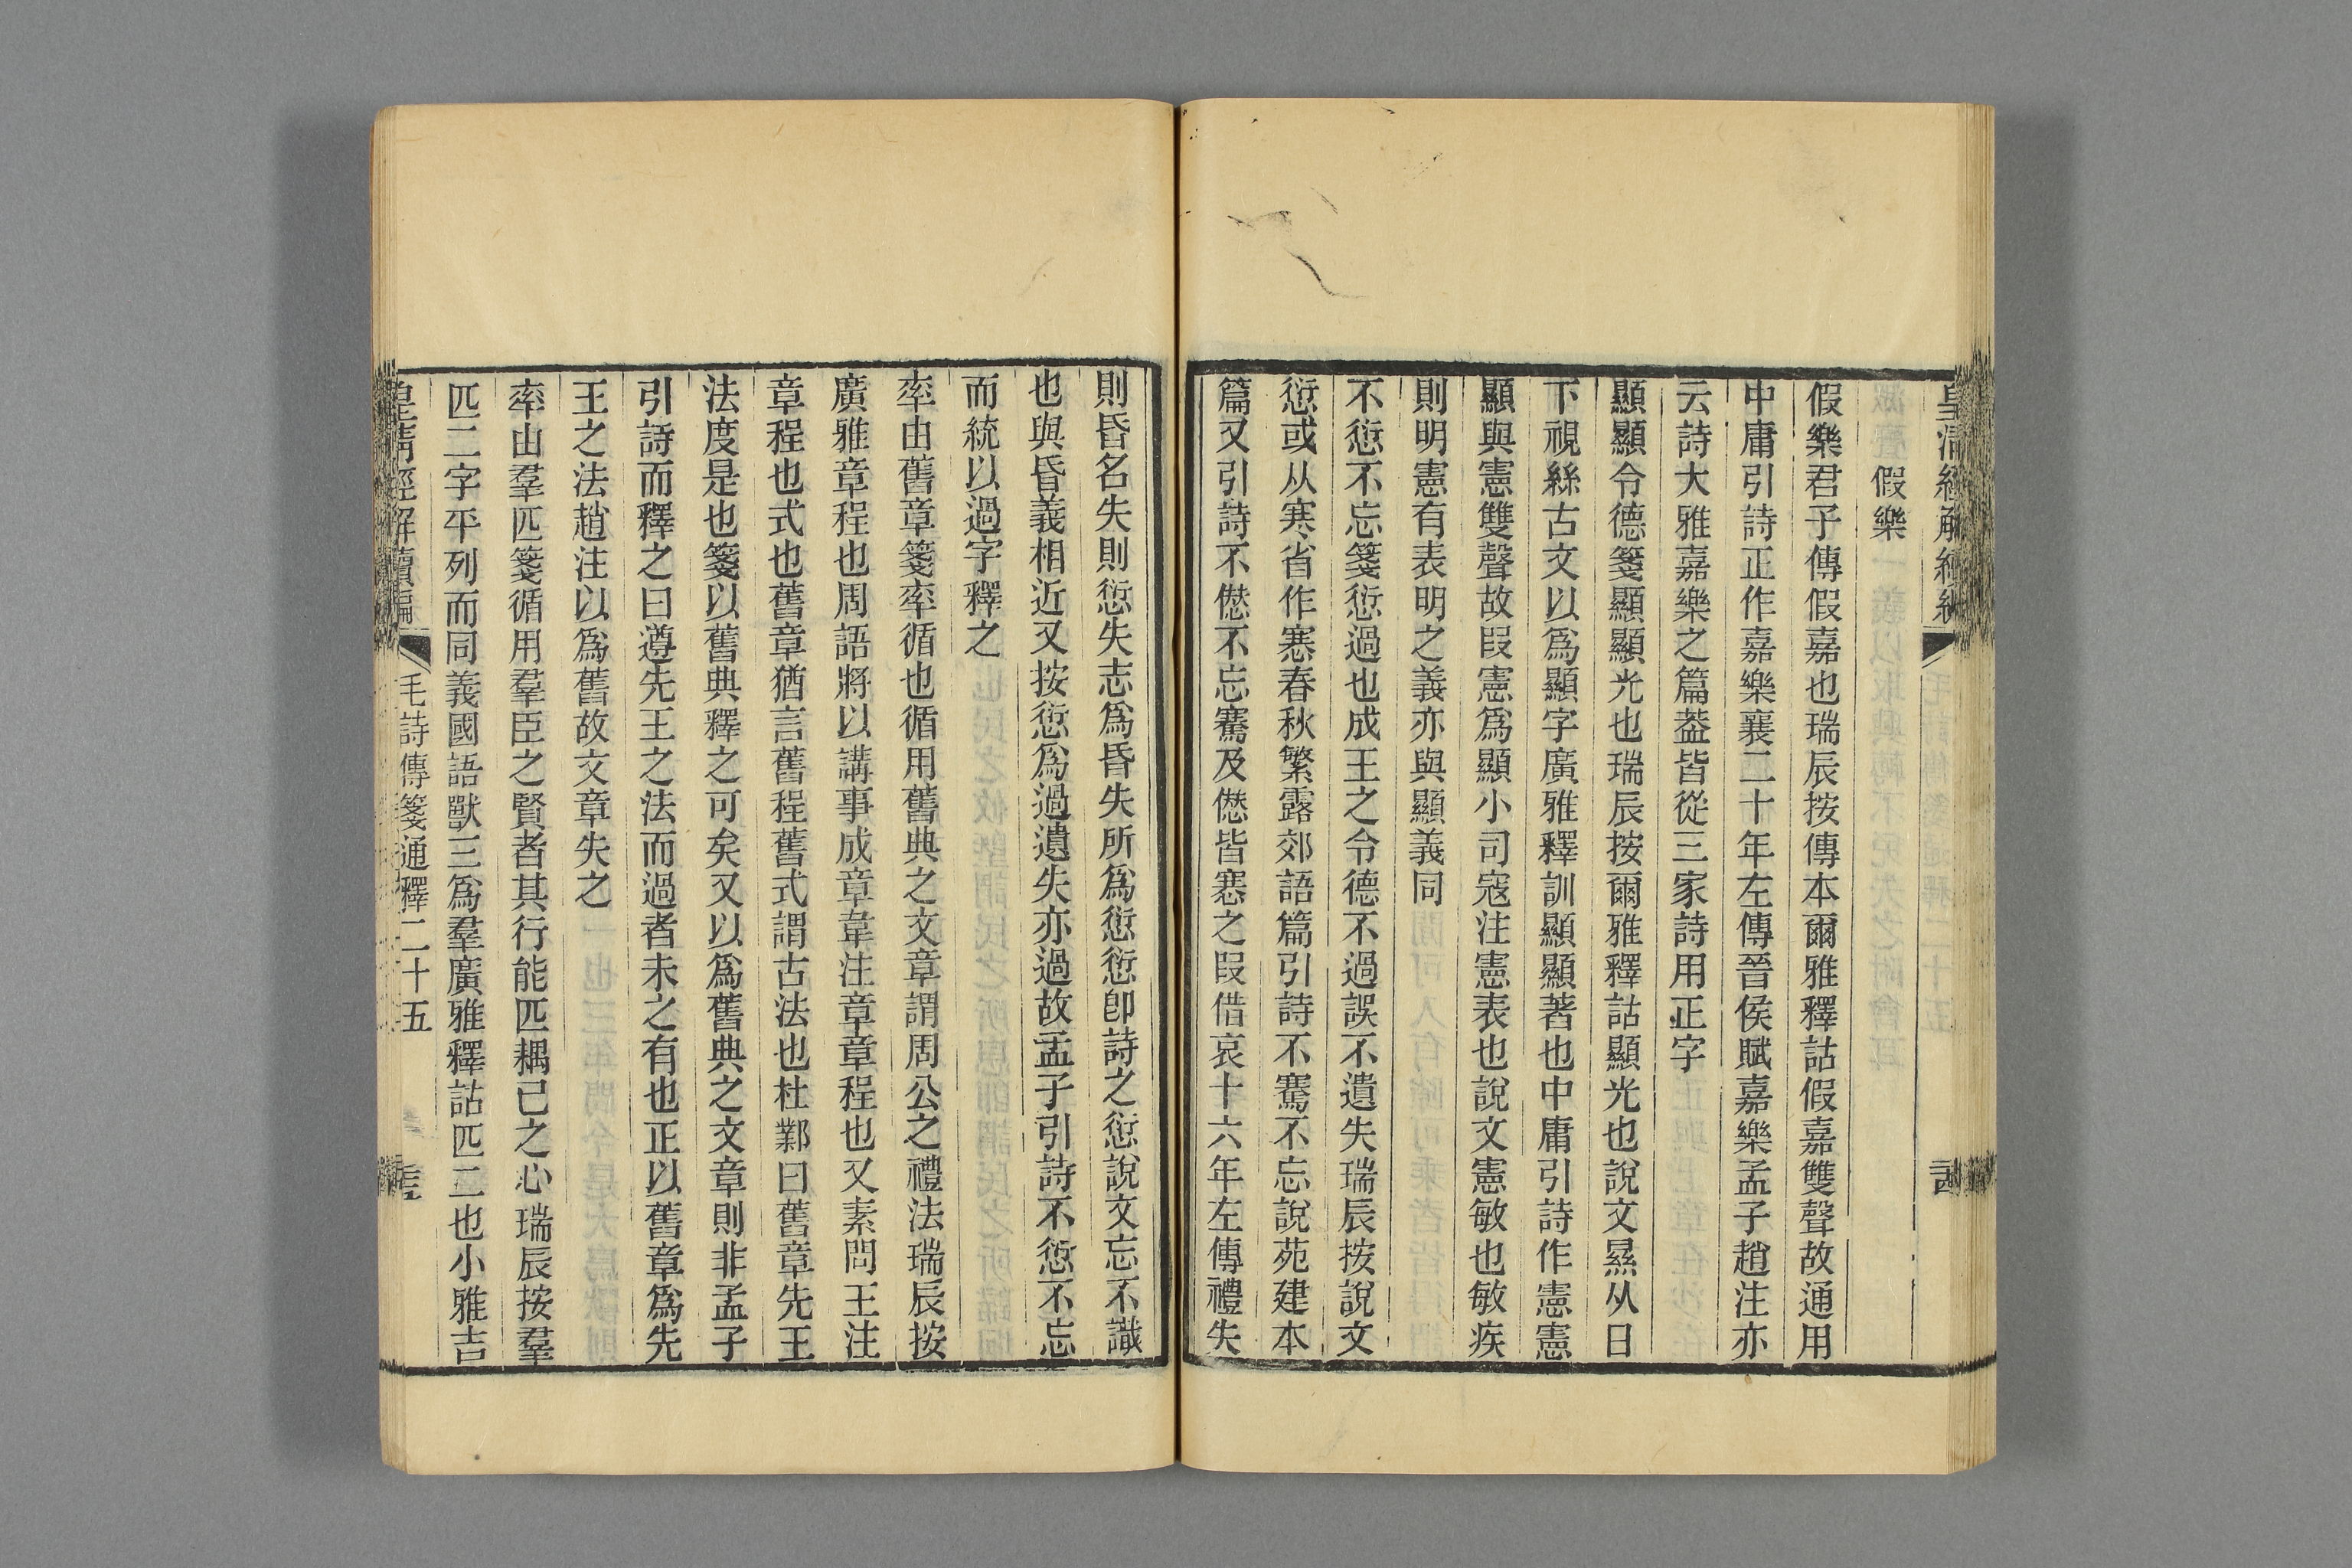 假樂
假樂君子傳假嘉也瑞辰按傳本爾雅釋詁假嘉雙聲故通用
中庸引詩正作嘉樂襄二十年左傳晉侯賦嘉樂孟子趙注亦
云詩大雅嘉樂之篇葢皆從三家詩用正字
顯顯令德箋顯顯光也瑞辰按爾雅釋詁顯光也說文㬎从日
下視絲古文以爲顯字廣雅釋訓顯顯著也中庸引詩作憲憲
顯與憲雙聲故叚憲爲顯小司寇注憲表也說文憲敏也敏疾
則明憲有表明之義亦與顯義同
不愆不忘箋愆過也成王之令德不過誤不遺失瑞辰按說文
愆或从寒省作𠎝春秋繁露郊語篇引詩不騫不忘說苑建本
篇又引詩不僁不忘騫及僁皆𠎝之叚借哀十六年左傳禮失
則昏名失則愆失志爲昏失所爲愆愆卽詩之愆說文忘不識
也與昏義相近又按愆爲過遺失亦過故孟子引詩不愆不忘
而統以過字釋之
率由舊章箋率循也循用舊典之文章謂周公之禮法瑞辰按
廣雅章程也周語將以講事成章韋注章章程也又素問王注
章程也式也舊章猶言舊程舊式謂古法也杜鄴曰舊章先王
法度是也箋以舊典釋之可矣又以爲舊典之文章則非孟子
引詩而釋之曰遵先王之法而過者未之有也正以舊章爲先
王之法趙注以爲舊故文章失之
率由羣匹箋循用羣臣之賢者其行能匹耦己之心瑞辰按羣
匹二字平列而同義國語獸三爲羣廣雅釋詁匹二也小雅吉
皇清經解續編 毛詩傳箋通釋二十五